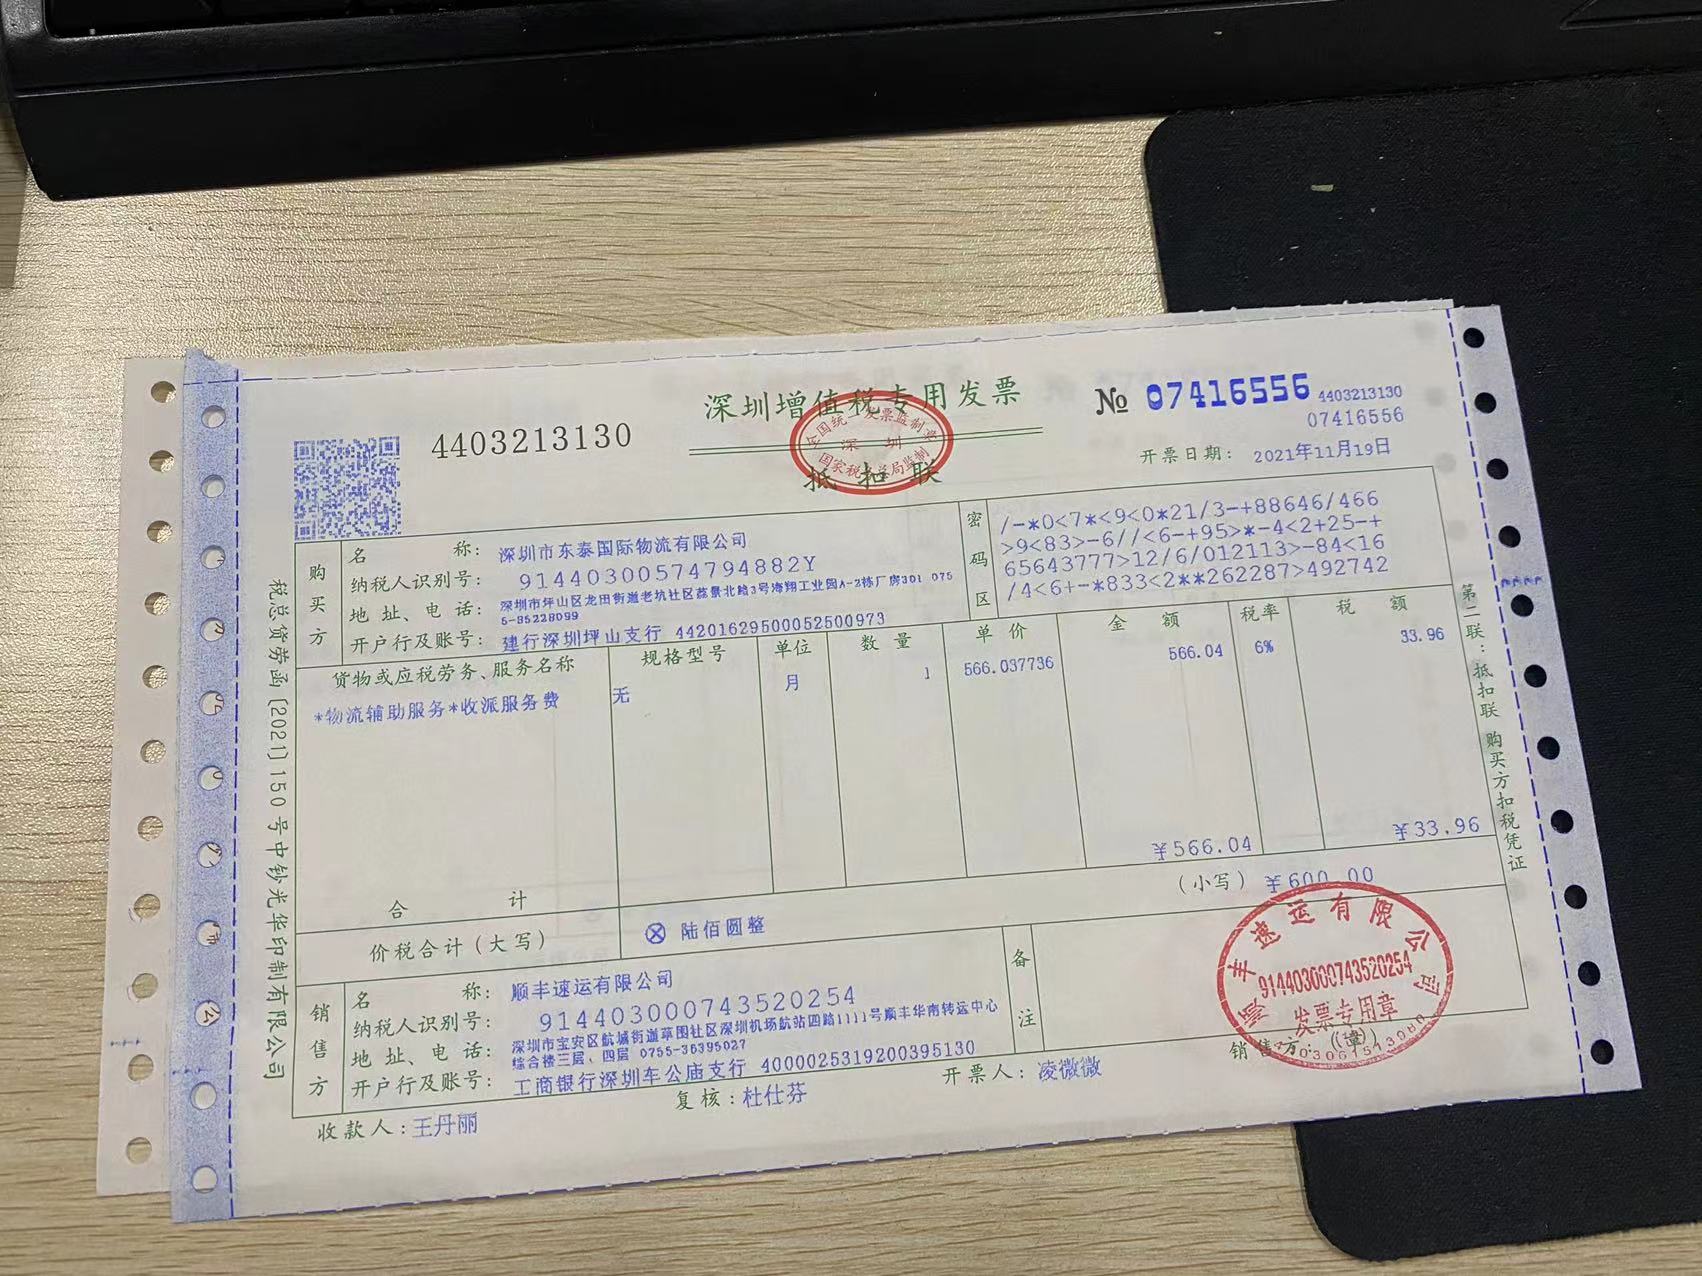 4403213130
深圳增值税专用发票
№ 07416556
4403213130
07416556
全国统一发票监制章
深圳
国家税务总局监制
抵扣联
开票日期：2021年11月19日
税总货劳函[2021]150号中钞光华印制有限公司
购买方
名称：深圳市东泰国际物流有限公司
纳税人识别号：91440300574794882Y
地址、电话：深圳市坪山区龙田街道老坑社区荔景北路3号海翔工业园A-2栋厂房301 075
5-85228099
开户行及账号：建行深圳坪山支行 44201629500052500973
密码区
/-*0<7*<9<0*21/3-+88646/466
>9<83>-6//<6-+95>*-4<2+25-+
65643777>12/6/012113>-84<16
/4<6+-*833<2**262287>492742
货物或应税劳务、服务名称 规格型号 单位 数量 单价 金额 税率 税额
*物流辅助服务*收派服务费 无 月 1 566.037736 566.04 6% 33.96
合计 ¥566.04 ¥33.96
价税合计（大写） ⊗陆佰圆整 （小写）¥600.00
销售方
名称：顺丰速运有限公司
纳税人识别号：914403000743520254
地址、电话：深圳市宝安区航城街道草围社区深圳机场航站四路1111号顺丰华南转运中心
综合楼三层、四层 0755-36395027
开户行及账号：工商银行深圳车公庙支行 4000025319200395130
备注
收款人：王丹丽
复核：杜仕芬
开票人：凌微微
销售方：（章）
顺丰速运有限公司
914403000743520254
发票专用章
第二联：抵扣联 购买方扣税凭证